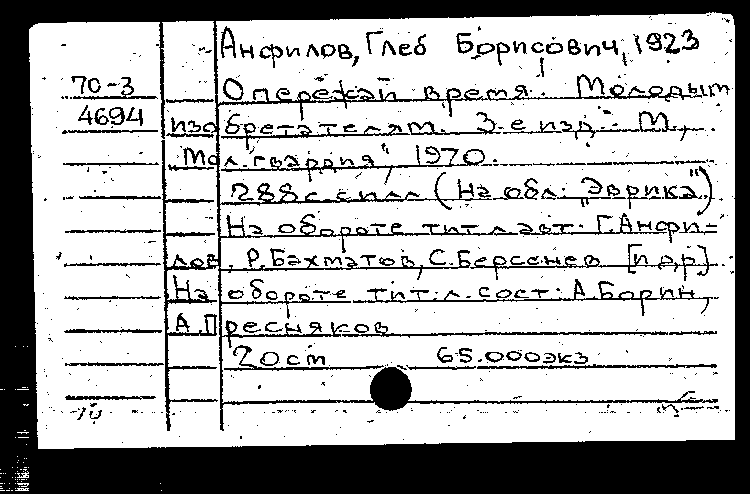 Анфилов, Глеб Борисович, 1923
70-3 Опережай время! Молодым
4694 изобретателям. 3-е изд.- М.,
"Мол. гвардия", 1970.
288 с. с илл (На обл.: "Эврика")
На обороте тит. л. авт.: Г. Анфи-
лов, Р. Бахматов, С. Берсенев [и др]
На обороте тит. л. сост.: А. Борин,
А. Пресняков
20 см 65.000 экз